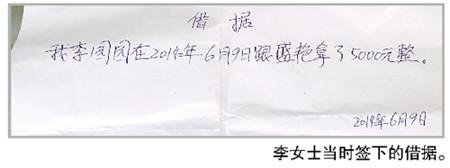 借据
我李园园在2014年6月9日跟盛艳拿了5000元整。
2014年6月9日
李女士当时签下的借据。